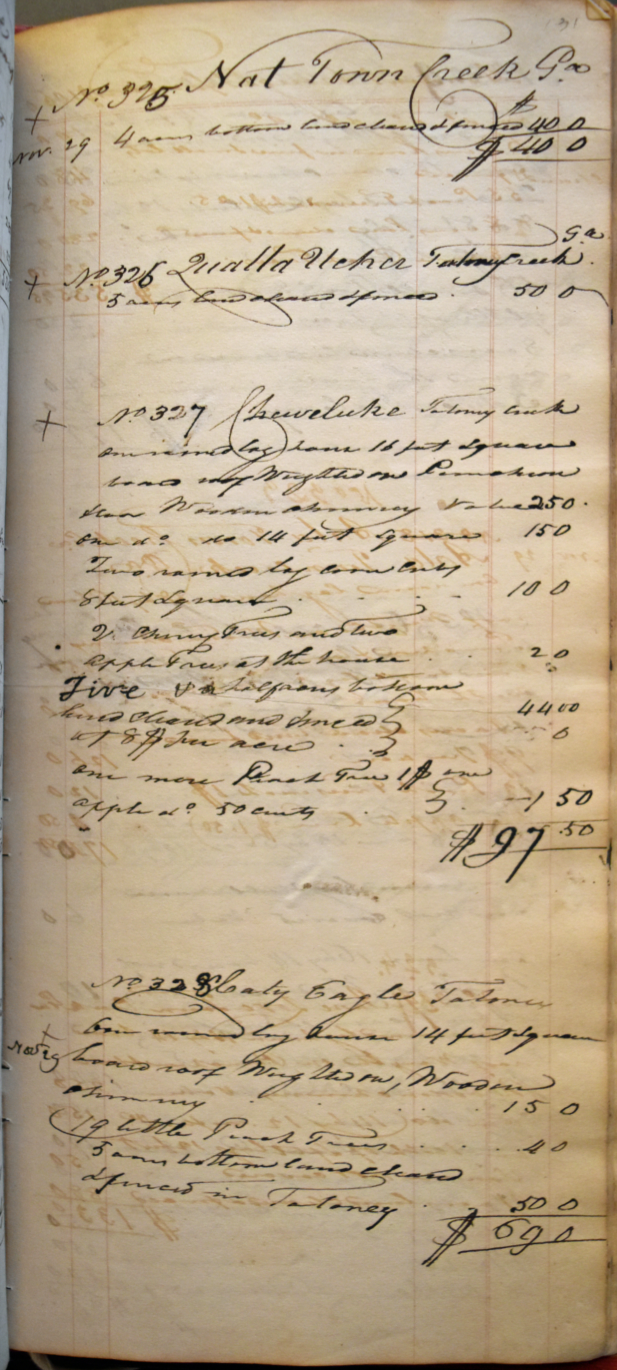 31
+ No. 325 Nat Town Creek Ga
$
Nov. 29 4 acres bottom land cleared & fenced 40 0
$ 40 0
Ga
+ No. 326 Qualla Ucher Taloney Creek.
5 acres land cleared & fenced . 50 0
+ No. 327 Cheweluke Taloney Creek
one round log house 16 feet square
board roof Weighted on Puncheon
floor Wooden chimney Value 250.
one do. do 14 feet square 150
Two round log corn cribs
8 feet square . . . . 10 0
2 Cherry Trees and two
apple Trees at the house . . 20
Five & a half acres bottom
land cleared and fenced 4400
at 8$ per acre . . 0
one more Peach Tree 1$ one
apple do. 50 cents . . 1 50
$ 97 .50
No. 328 Caty Eagle Taloney
+ One round log house 14 feet square
Nov 29 board roof Weighted on, Wooden
chimney . . . . . 15 0
19 little Peach Trees . . . . 40
5 acres bottom land cleared
& fenced in Taloney . . 50 0
$ 69 0